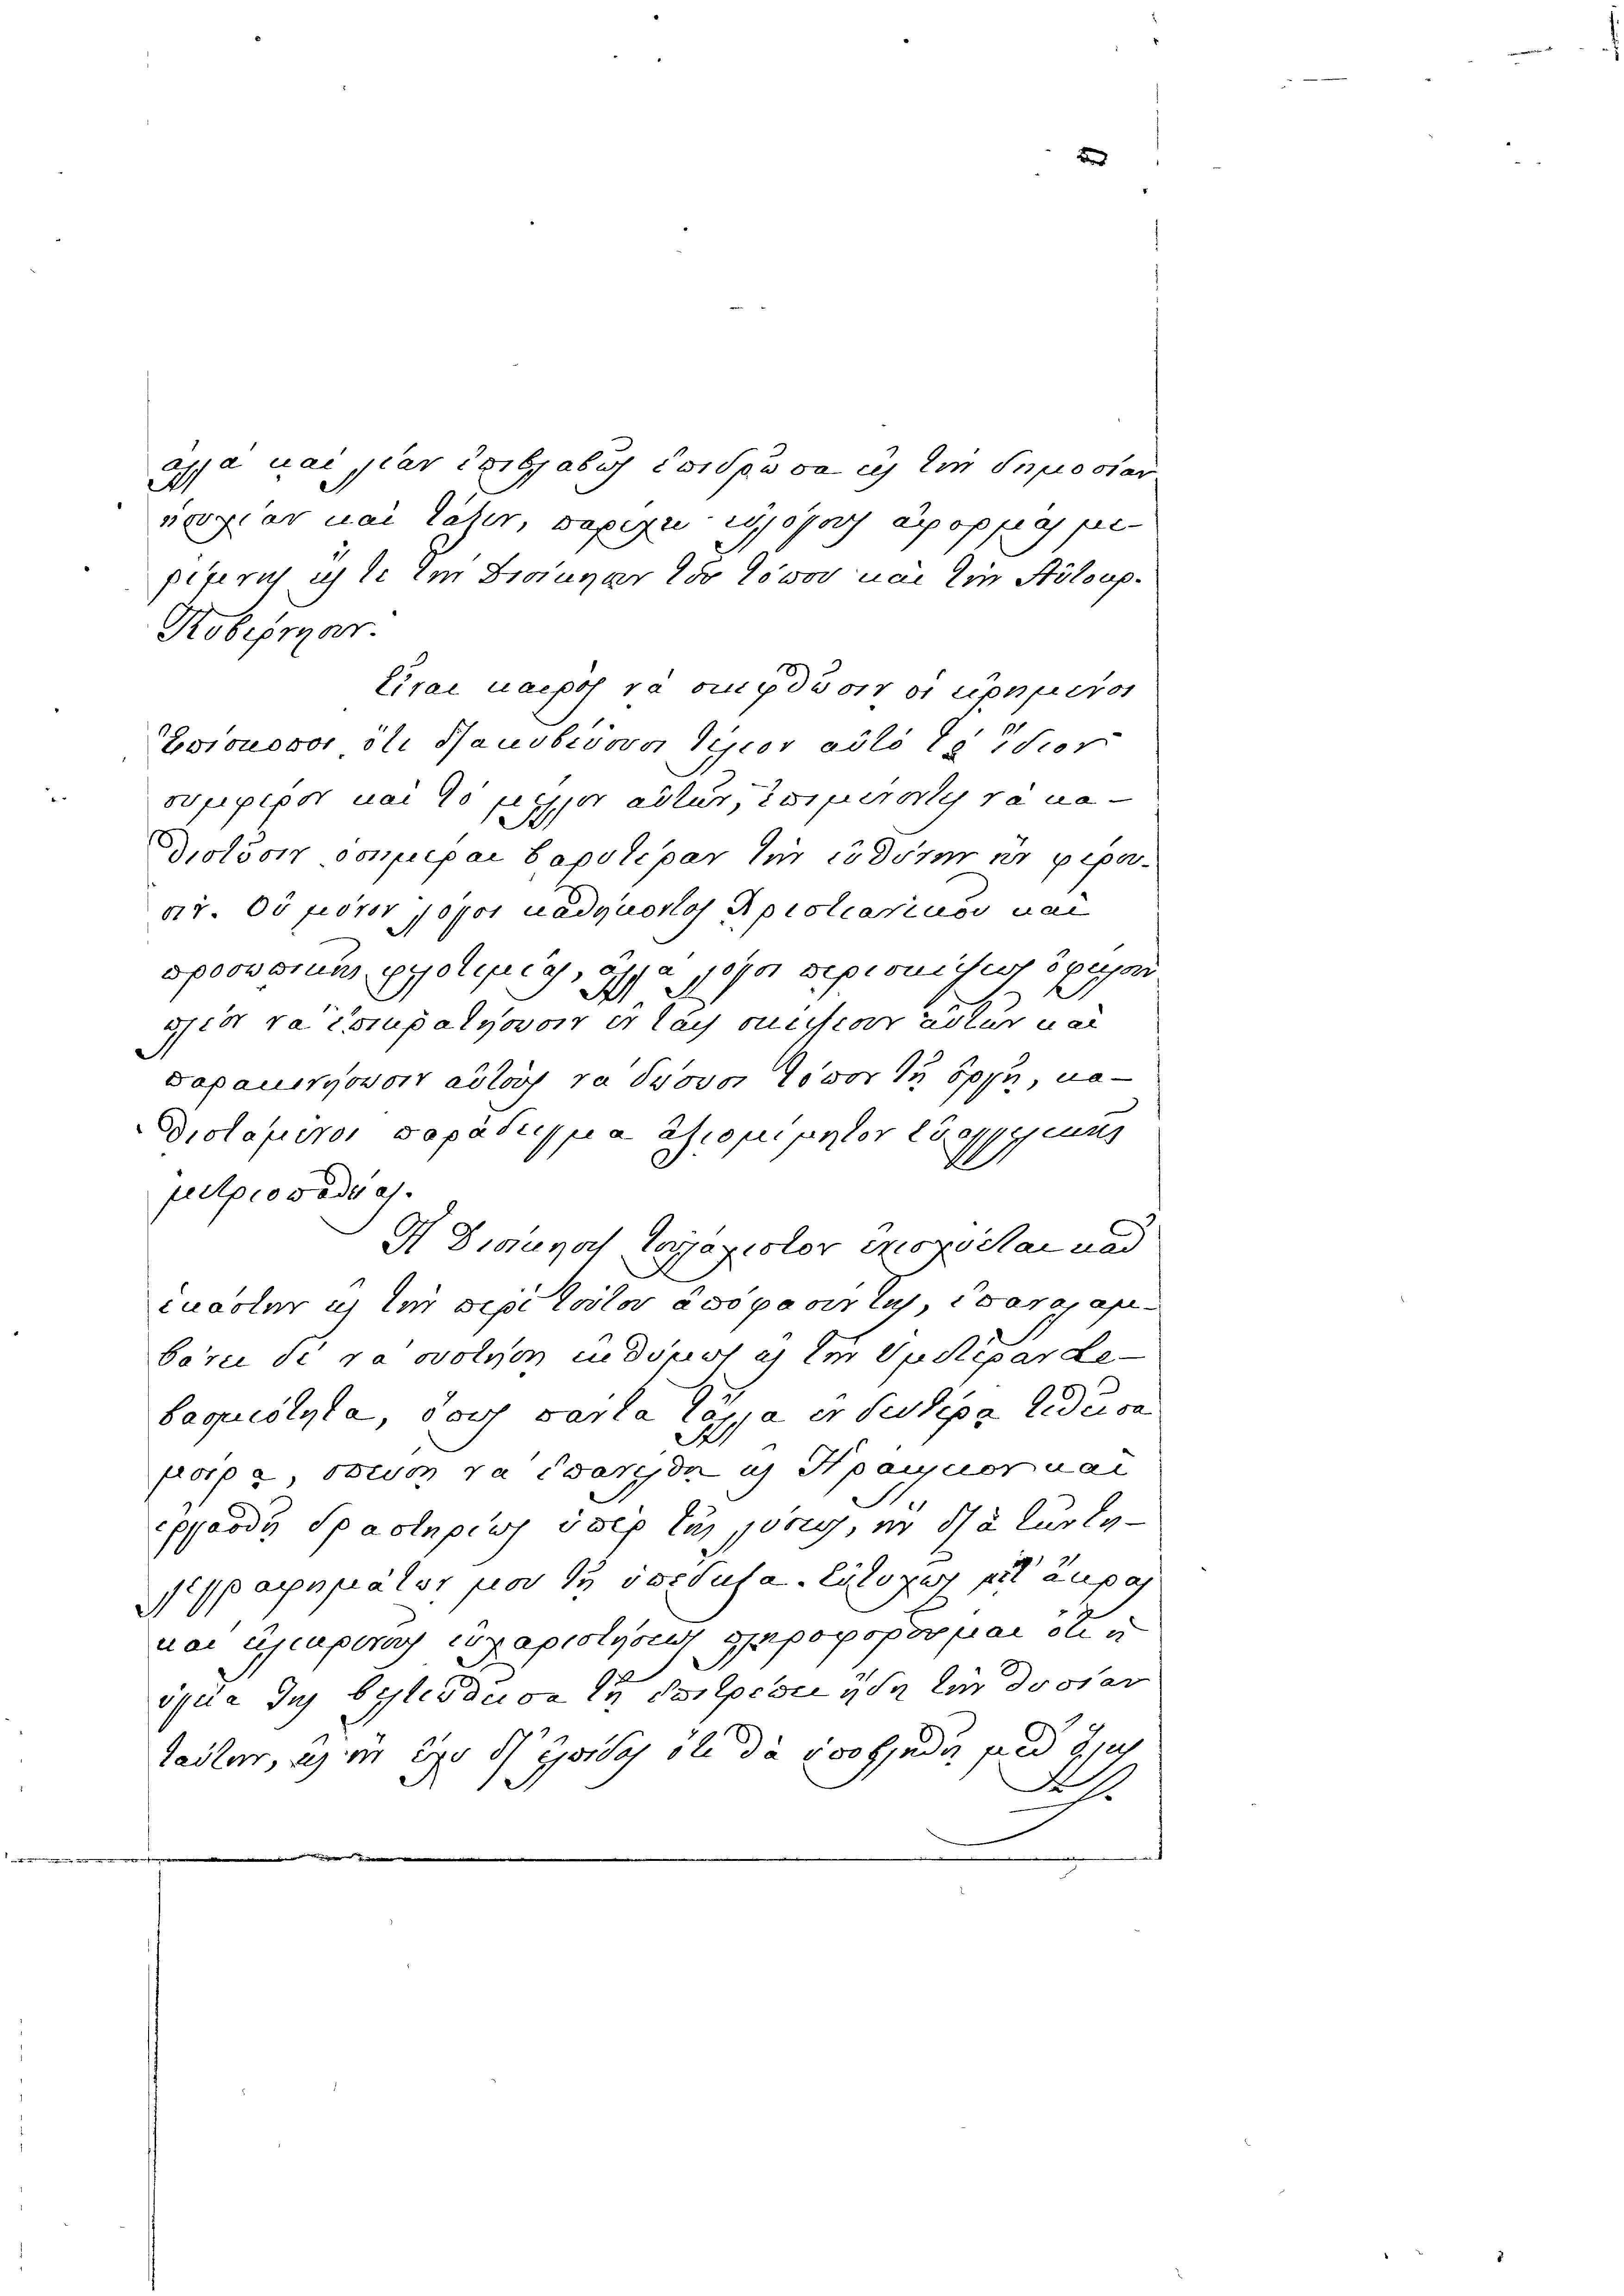 ἀλλὰ καὶ λίαν ἐπιβλαβὴς ἐπιδρῶσα εἰς τὴν δημοσίαν
ἡσυχίαν καὶ τάξιν, παρέχει εὐλόγους ἀφορμὰς με-
ρίμνης εἴς τε τὴν Διοίκησιν τοῦ τόπου καὶ τὴν Αὐτοκρ.
Κυβέρνησιν.
Εἶναι καιρὸς νὰ αἰσθανθῶσιν οἱ εἰρημένοι
Ἐπίσκοποι ὅτι διακυβεύουσι τοιουτοτρόπως αὐτὸ τὸ ἴδιον
συμφέρον καὶ τὸ μέλλον αὐτῶν, ἐπιμένοντες νὰ κα-
θιστῶσιν ὁσημέραι βαρυτέραν τὴν εὐθύνην ἣν φέρου-
σιν. Οὐ μόνον λόγοι καθήκοντος Χριστιανικοῦ καὶ
προσωπικῆς φιλοτιμίας, ἀλλὰ λόγοι περισκέψεως ὤφειλον
πλέον νὰ ἐπικρατήσωσιν ἐν ταῖς σκέψεσιν αὐτῶν καὶ
παρακινήσωσιν αὐτοὺς νὰ δώσωσι τόπον τῇ ὀργῇ, κα-
θιστάμενοι παράδειγμα ἀξιομίμητον εὐαγγελικῆς
μετριοπαθείας.
Ἡ Διοίκησις τοὐλάχιστον ἐνισχύεται καθ'
ἑκάστην εἰς τὴν περὶ τούτου ἀπόφασιν της, ἐπαναλαμ-
βάνει δὲ νὰ συστήσῃ εὐθύμως εἰς τὴν Ὑμετέραν Σε-
βασμιότητα, ὅπως πάντα τἄλλα ἐν δευτέρᾳ θέσει
μοίρᾳ, σπεύσῃ νὰ ἐπανέλθῃ εἰς Ἡράκλειον καὶ
ἐργασθῇ δραστηρίως ὑπὲρ τῆς λύσεως, ἣν διὰ τῶν τη-
λεγραφημάτων μου τῇ ὑπέδειξα. Εὐτυχῶς μετ' ἄκρας
καὶ εἰλικρινοῦς εὐχαριστήσεως πληροφοροῦμαι ὅτι ἡ
ὑγεία Της βελτιωθεῖσα Τῇ ἐπιτρέπει ἤδη τὴν θυσίαν
ταύτην, εἰς ἣν ἔχω δι' ἐλπίδος ὅτι θὰ προβληθῇ μεθ' ὅλης